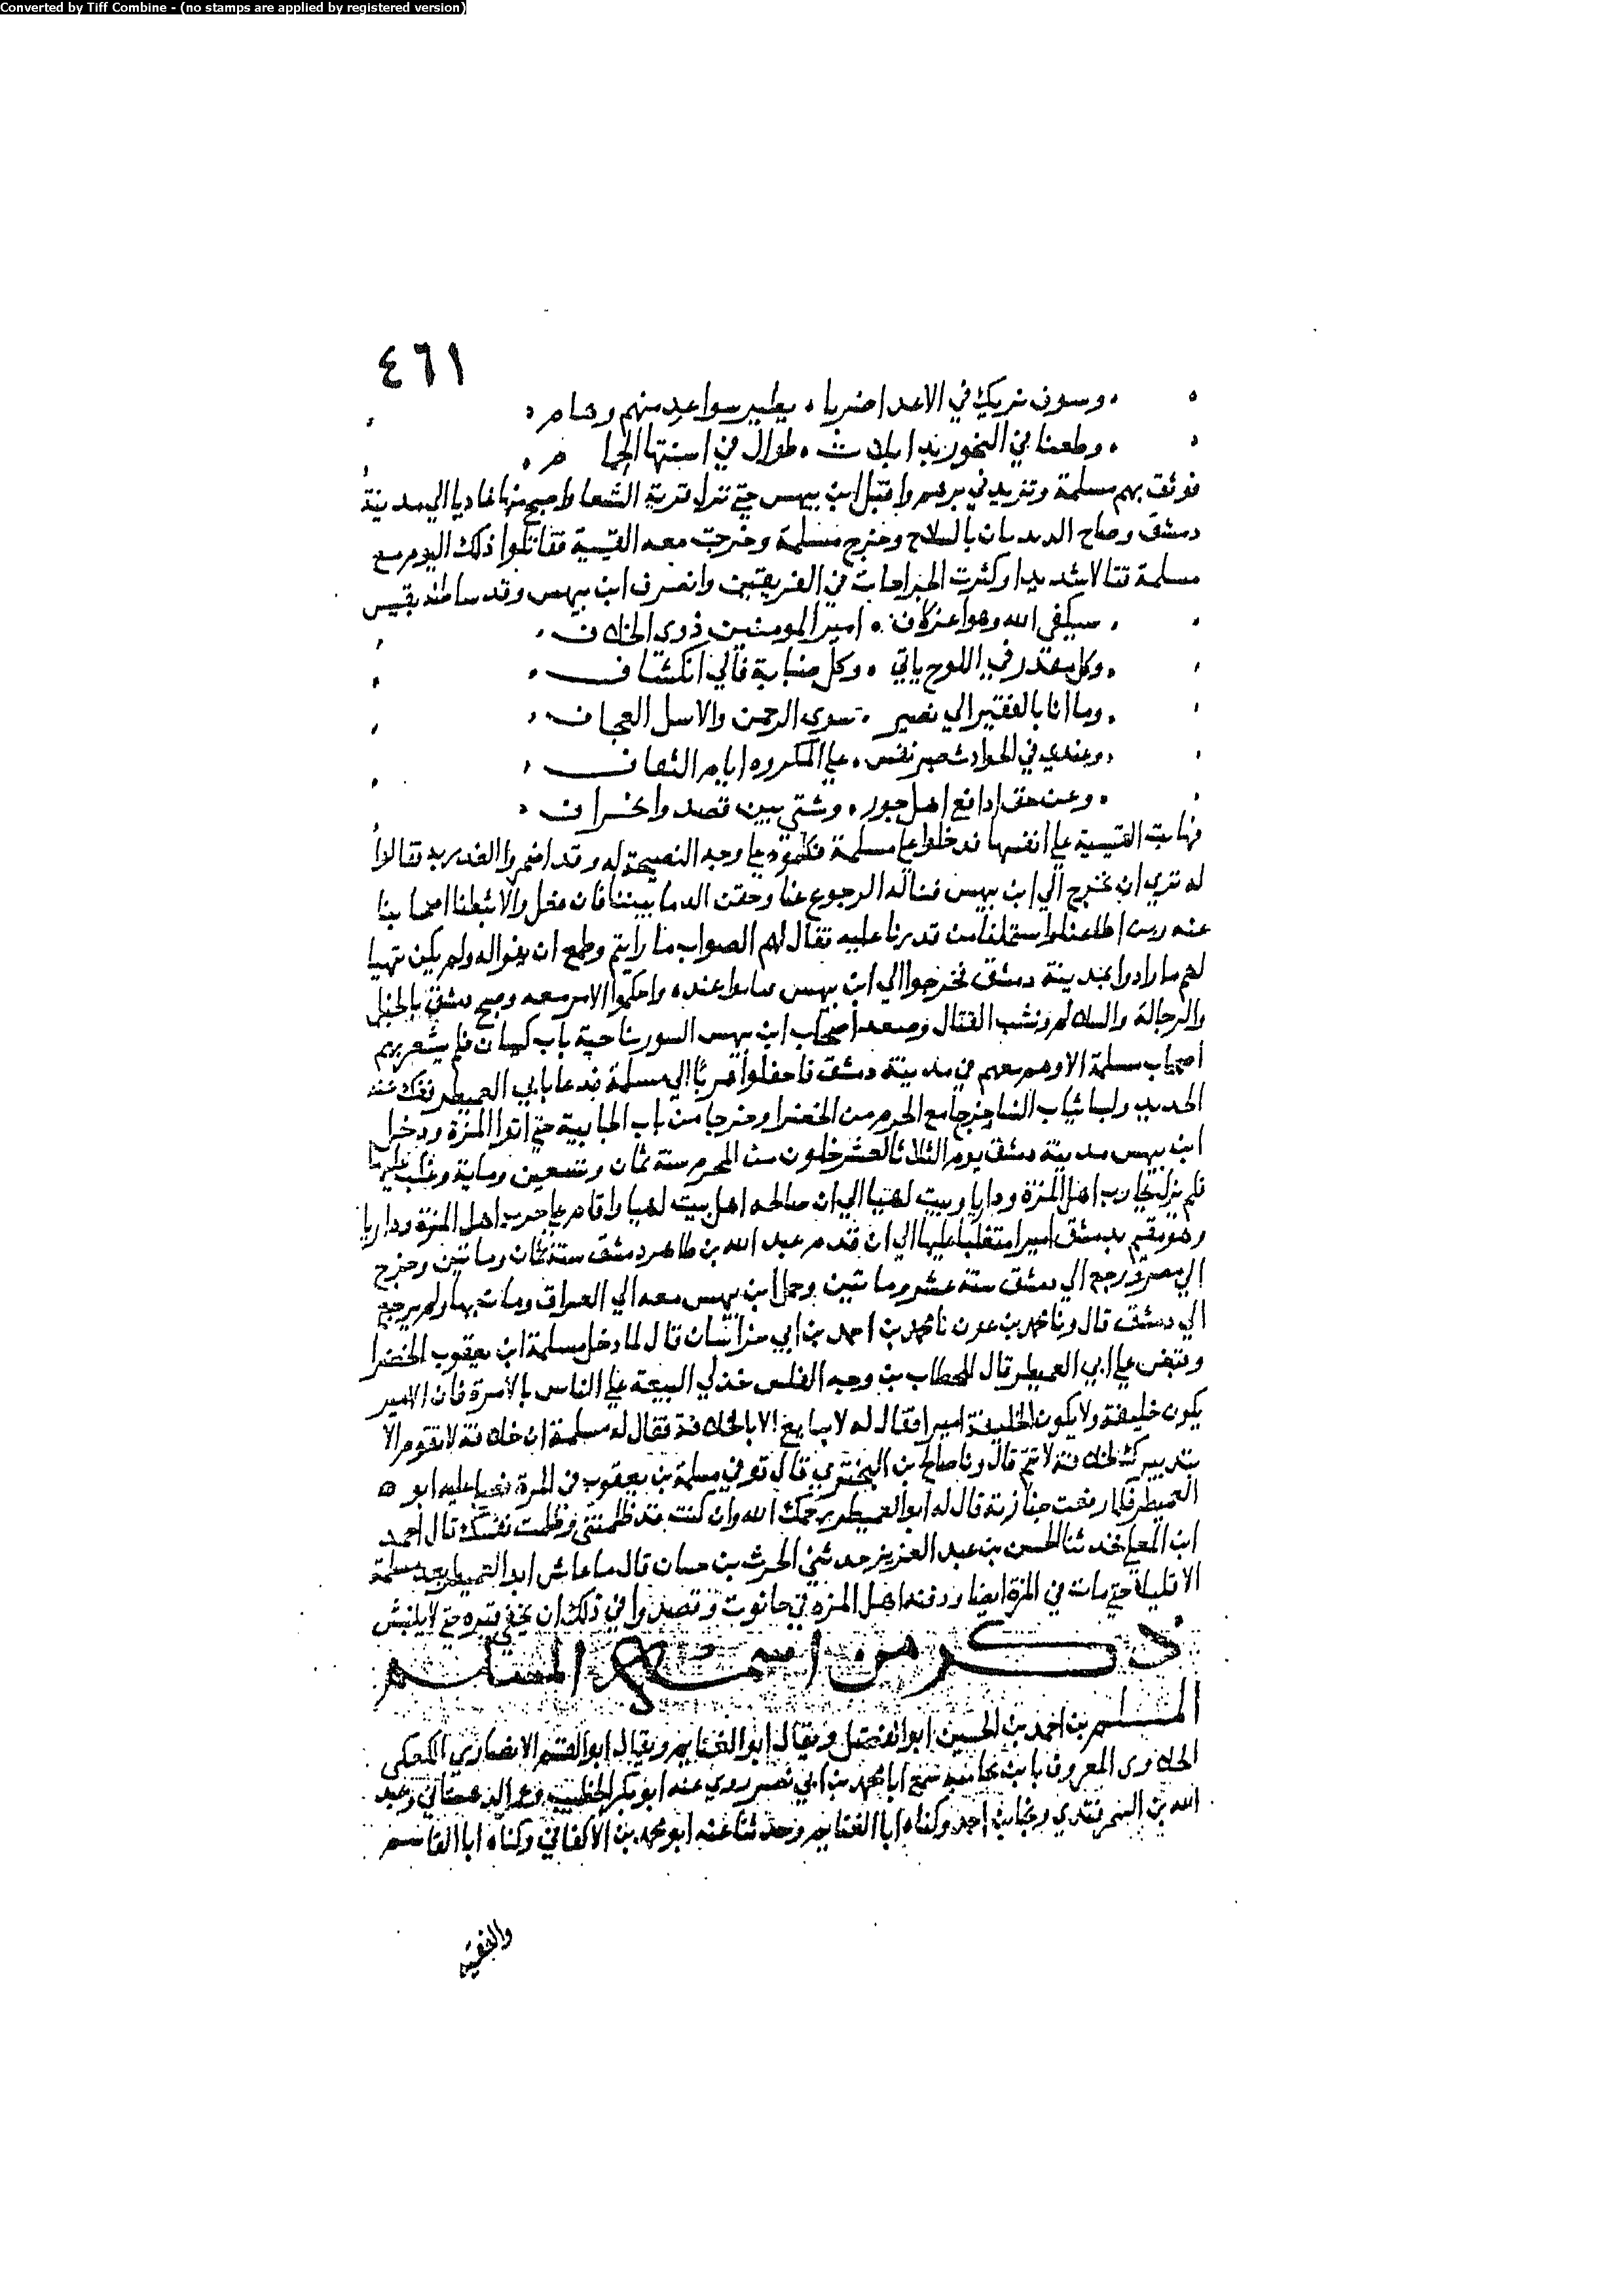 Converted by Tiff Combine - (no stamps are applied by registered version)
٤٦١
وسوف نريك في الاعدا ضربا ، يطير سواعد منهم وهام
وطعنا في النحور بذابلات ، طوال في اسنتها الحمام
فوثق بهم مسلمة وتزيد في برهم واقبل ابن بيهس حتى نزل قرية الشعا واصبح منها غاديا الي مدينة
دمشق وصاح الديدبان بالسلاح وخرج مسلمة وخرجت معه القيسية فقاتلوا ذلك اليوم مع
مسلمة قتالا شديدا وكثرت الجراحات في الفريقين وانصرف ابن بيهس وقد سا ظنه بقيس
سيكفي الله وهو اعز كاف ، امير المومنين ذوي الخلاف
وكل مقدر في اللوح ياتي ، وكل ضبابة فالي انكشاف
وما انا بالفقير الي نصير ، سوى الرحمن والاسل العجاف
وعندي في الحوادث صبر نفس ، علي المكروه ايام الثقاف
وعن حق ادافع اهل جور ، وشتي بين قصد وانحراف
فهابت القيسية علي انفسها فدخلوا علي مسلمة فكلموه علي وجه النصيحة له وقد اضمروا الغدر به فقالوا
له نري ان نخرج الي ابن بيهس فنساله الرجوع عنا وحقن الدما بيننا فان فعل والا ثبطنا اصحابنا
عنه ومن اطاعنا واستملنا من قدرنا عليه فقال لهم الصواب ما رايتم وطمع ان يفوا له ولم يكن تهيا
لهم ما ارادوا بمدينة دمشق فخرجوا الي ابن بيهس عنده واحكموا الامر معه وصبح دمشق بالخيل
والرجالة والسلالم ونشب القتال وصعد اصحاب ابن بيهس السور بناحية باب كيسان فلم يشعر بهم
اصحاب مسلمة الا وهم معهم في مدينة دمشق فاجفلوا هربا الي مسلمة فدعا بابي العميطر ففك عنه
الحديد ولبسا ثياب النسا وخرجا مع الحرم من الخضرا وخرجا من باب الجابية حتي اتوا المزة ودخل
ابن بيهس مدينة دمشق يوم الثلاثا لعشر خلون من المحرم سنة ثمان وتسعين وماية وغلب عليها
فلم يزل يحارب اهل المزة وداريا وبيت لهيا الي ان صالحه اهل بيت لهيا واقام علي حرب اهل المزة وداريا
وهو مقيم بدمشق اميرا متغلبا عليها الي ان قدم عبد الله بن طاهر دمشق سنة ثمان وماتين وخرج
الي مصر ورجع الي دمشق سنة عشر وماتين وحمل ابن بيهس معه الي العراق ومات بها ولم يرجع
الي دمشق قال ونا محمد بن عون نا محمد بن احمد بن ابي خراسان قال لما دخل مسلمة ابن يعقوب الخضرا
وقبض علي ابي العميطر قال للحطاب بن وجه الفلس خذ لي البيعة علي الناس بالامرة فان الامير
يكون خليفة ولا يكون الخليفة اميرا فقال له لا يبايع الا بالخلافة فقال له مسلمة ان خلافة لا تقوم الا
بتدبيرك لخلافة لا تتم قال ونا صالح بن البختري قال توفي مسلمة بن يعقوب في المزة فصلي عليه ابو
العميطر فلما رفعت جنازته قال له ابو العميطر يرحمك الله وان كنت قد ظلمتني وظلمت نفسك قال احمد
ابن المعلي فحدثنا الحسن بن عبد العزيز حدثني الحرث بن حسان قال ما عاش ابو العميطر بعد مسلمة
الا قليلا حتي مات في المزة ايضا ودفنه اهل المزه في حانوت وقصدوا في ذلك ان يخفي قبره حتي لا ينبش
ذكر من اسمه المسلم
المسلم بن احمد بن الحسين ابو الفضل ويقال ابو الغنايم ويقال ابو القسم الانصاري الكعكي
الحلاوي المعروف بابن سمع ابا محمد بن ابي نصر روي عنه ابو بكر الخطيب وعمر الدهستاني وعبد
الله بن السمرقندي ونجا بن احمد وكناه ابا الغنايم وحدثنا عنه ابو محمد بن الاكفاني وكناه ابا القاسم
والفقيه